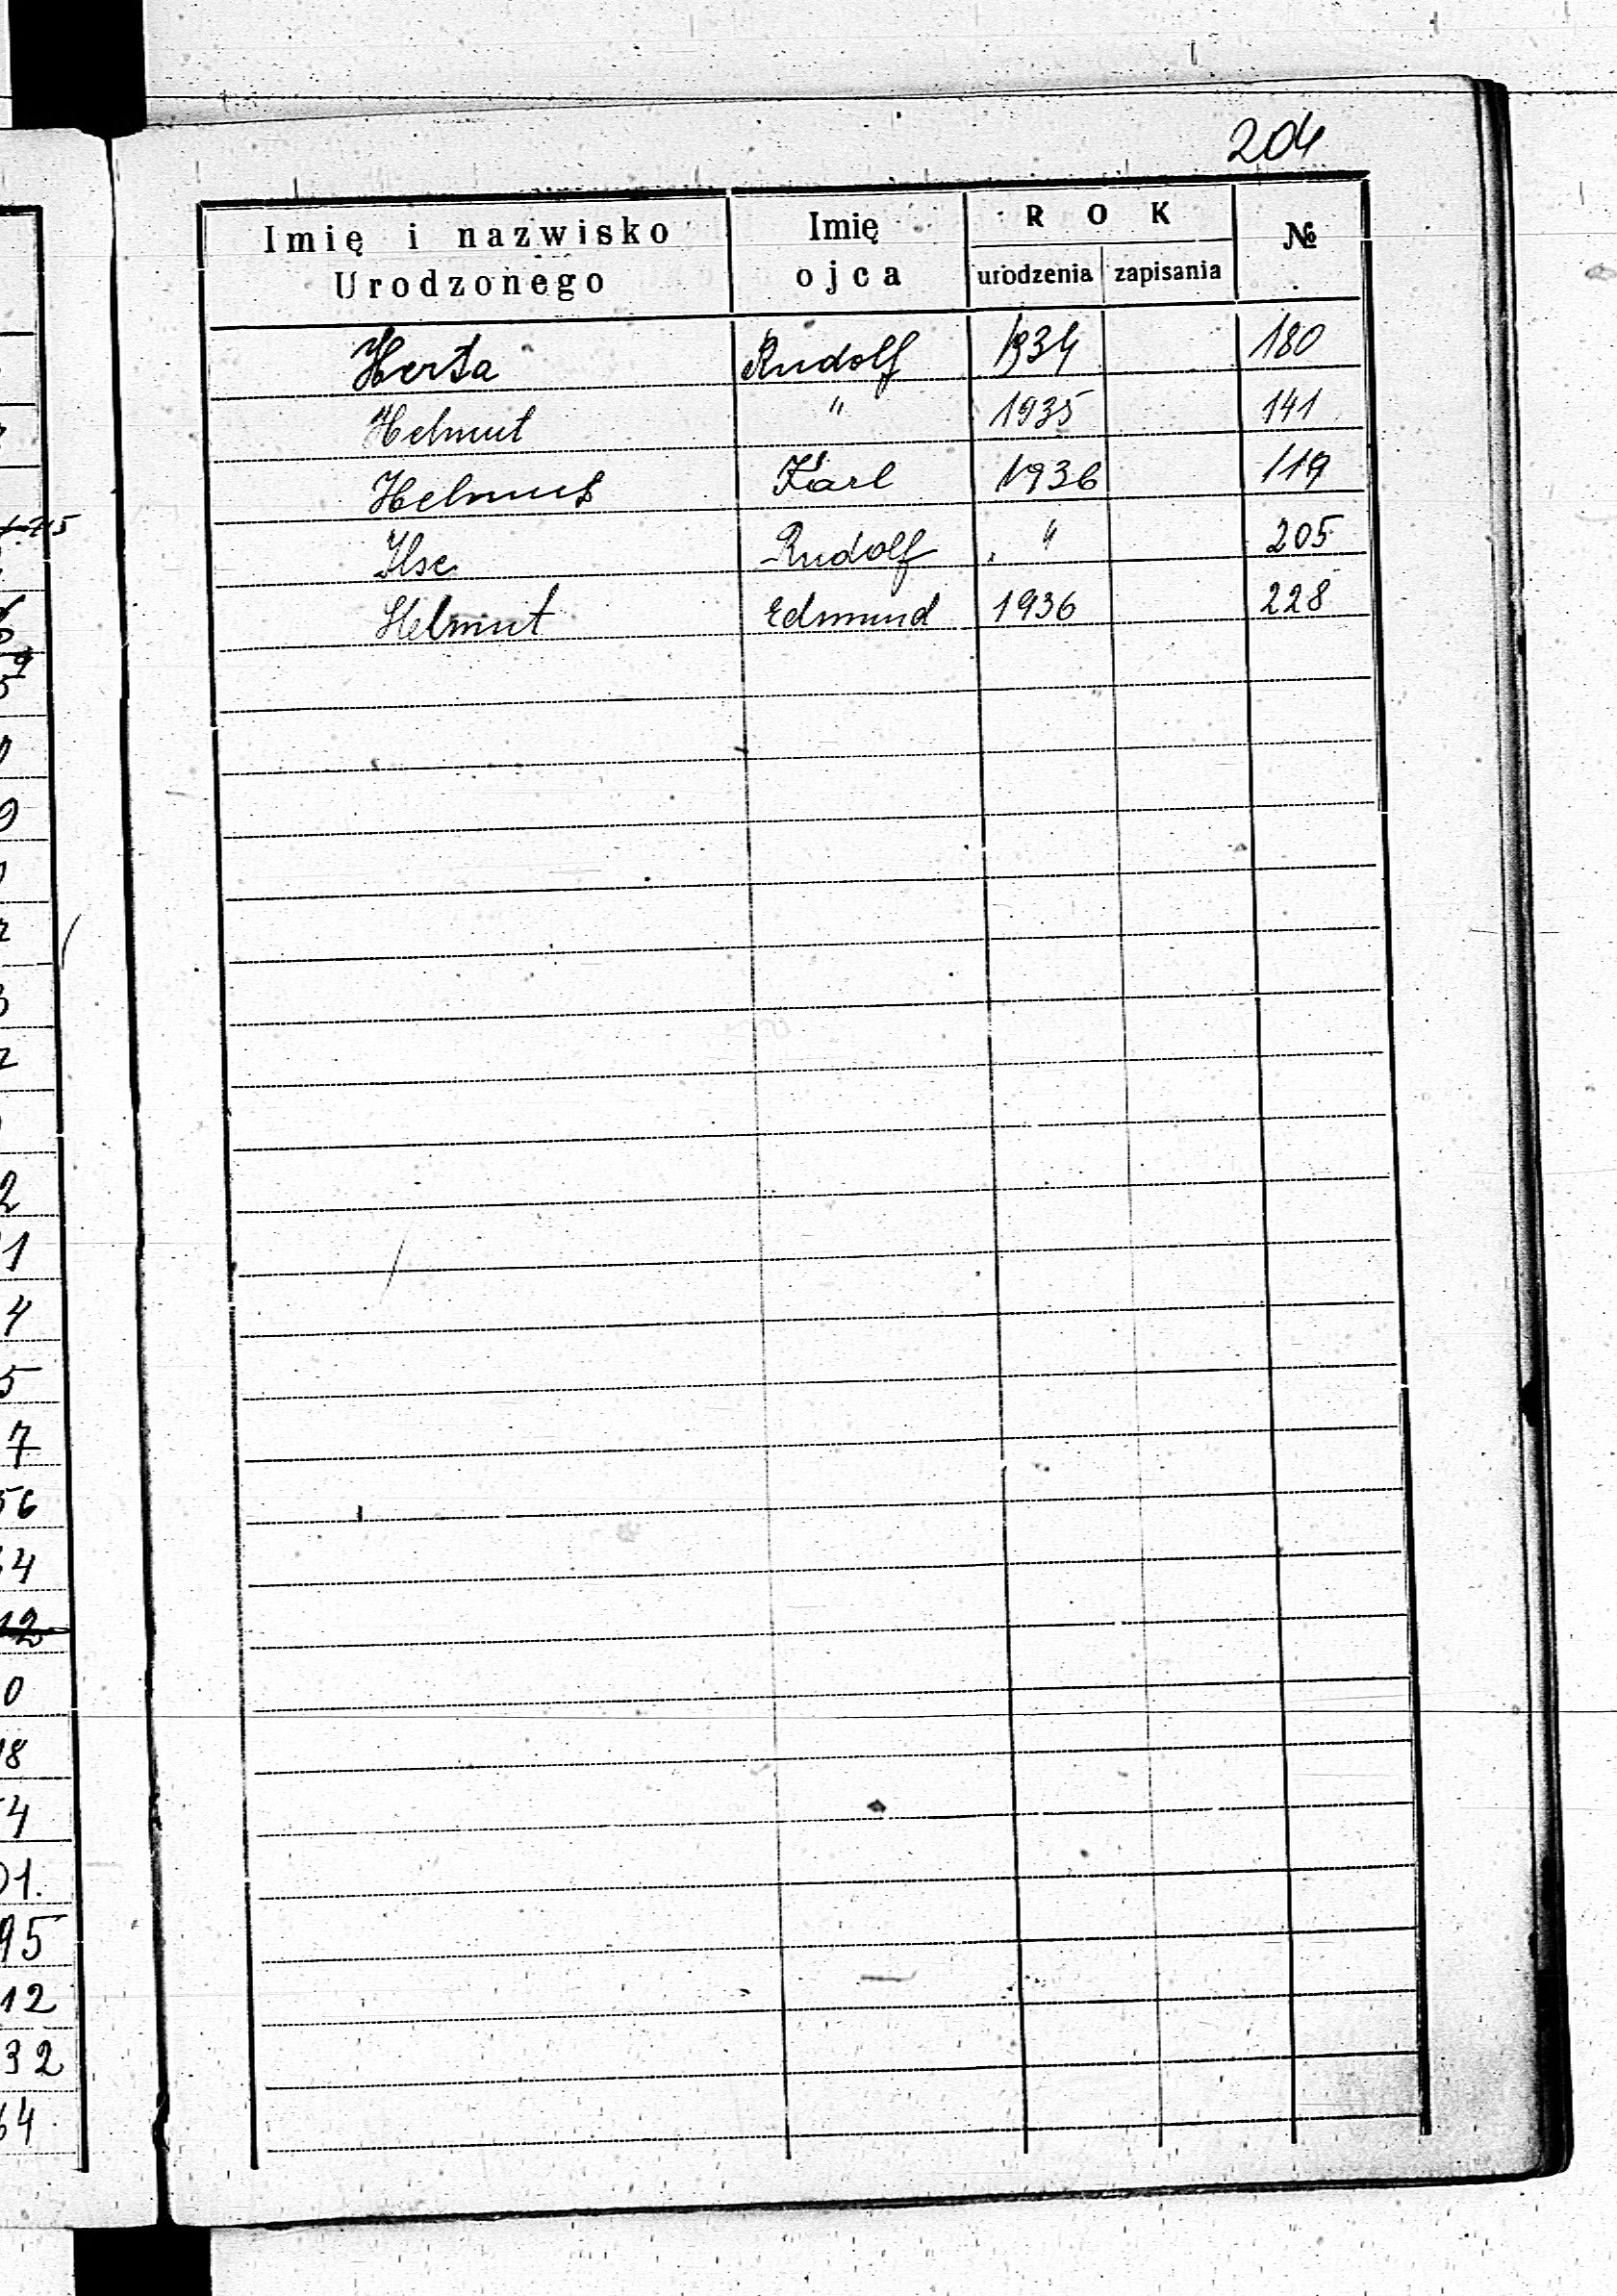 204
Imię i nazwisko Urodzonego Imię ojca ROK urodzenia zapisania №
Herta Rudolf 1934 180
Helmut " 1935 141
Helmut Karl 1936 119
Ilse Rudolf " 205
Helmut Edmund 1936 228